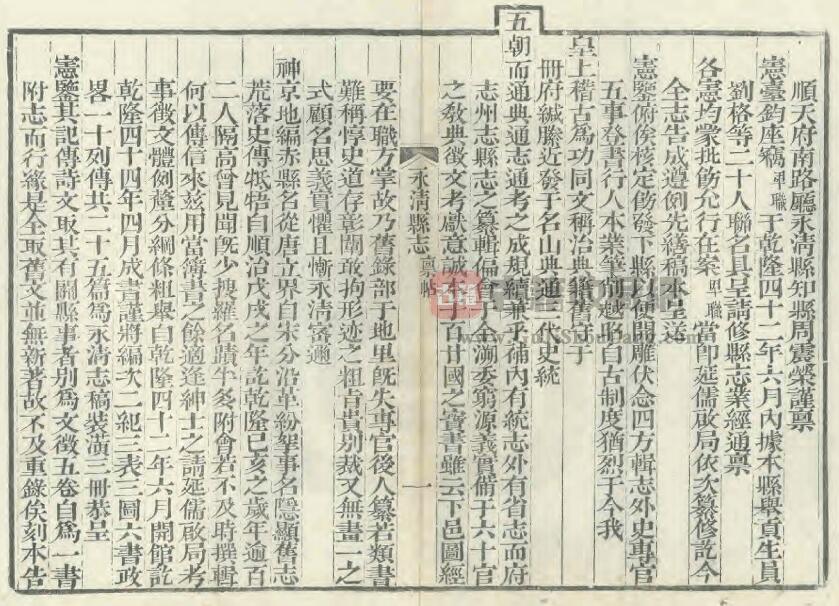 順天府南路廳永清縣知縣周震榮謹禀
憲臺鈞座竊卑職于乾隆四十二年六月內據本縣舉貢生員
劉格等二十人聯名具呈請修縣志業經通禀
各憲均蒙批飭允行在案卑職當即延儒啟局依次纂修訖今
全志告成遵例先繕稿本呈送
憲鑒俯俟核定飭發下縣以便開雕伏念四方輯志外史專官
五事登書行人本業筆削越昭自古制度猶烈于今我
皇上稽古為功同文稱治典籍舊守于
冊府緘縢近發于名山典通三代史統
五朝而通典通志通考之成規續兼乎
補內有統志外有省志而府
志州志縣志之纂輯偏會 全溯委窮源義實備于六十官
之敎典徵文考獻意誠本于百廿國之寶書雖云下邑圖經
永淸縣志 禀帖
一
要在職方掌故乃舊錄部于地里旣失專官後人纂若類書
難稱惇史道存彰闡敢拘形迹之粗旨貴別裁又無畫一之
式顧名思義實懼且慚永淸密邇
神京地編赤縣名從唐立界自宋分沿革紛挐事名隱顯舊志
荒落史傳牴牾自順治戊戌之年訖乾隆己亥之歲年逾百
二人隔高曾見聞旣少搜羅名蹟半多附會若不及時撰輯
何以傳信來兹用當簿書之餘適逢紳士之請延儒啟局考
事徵文體例釐分綱條粗舉自乾隆四十二年六月開館訖
乾隆四十四年四月成書謹將編次二紀三表三圖六書政
畧一十列傳共二十五篇為永淸志稿裝潢三冊恭呈
憲鑒其記傳詩文取其有關縣事者別為文徵五卷自為一書
附志而行緣是全取舊文並無新著故不及重錄俟刻本告